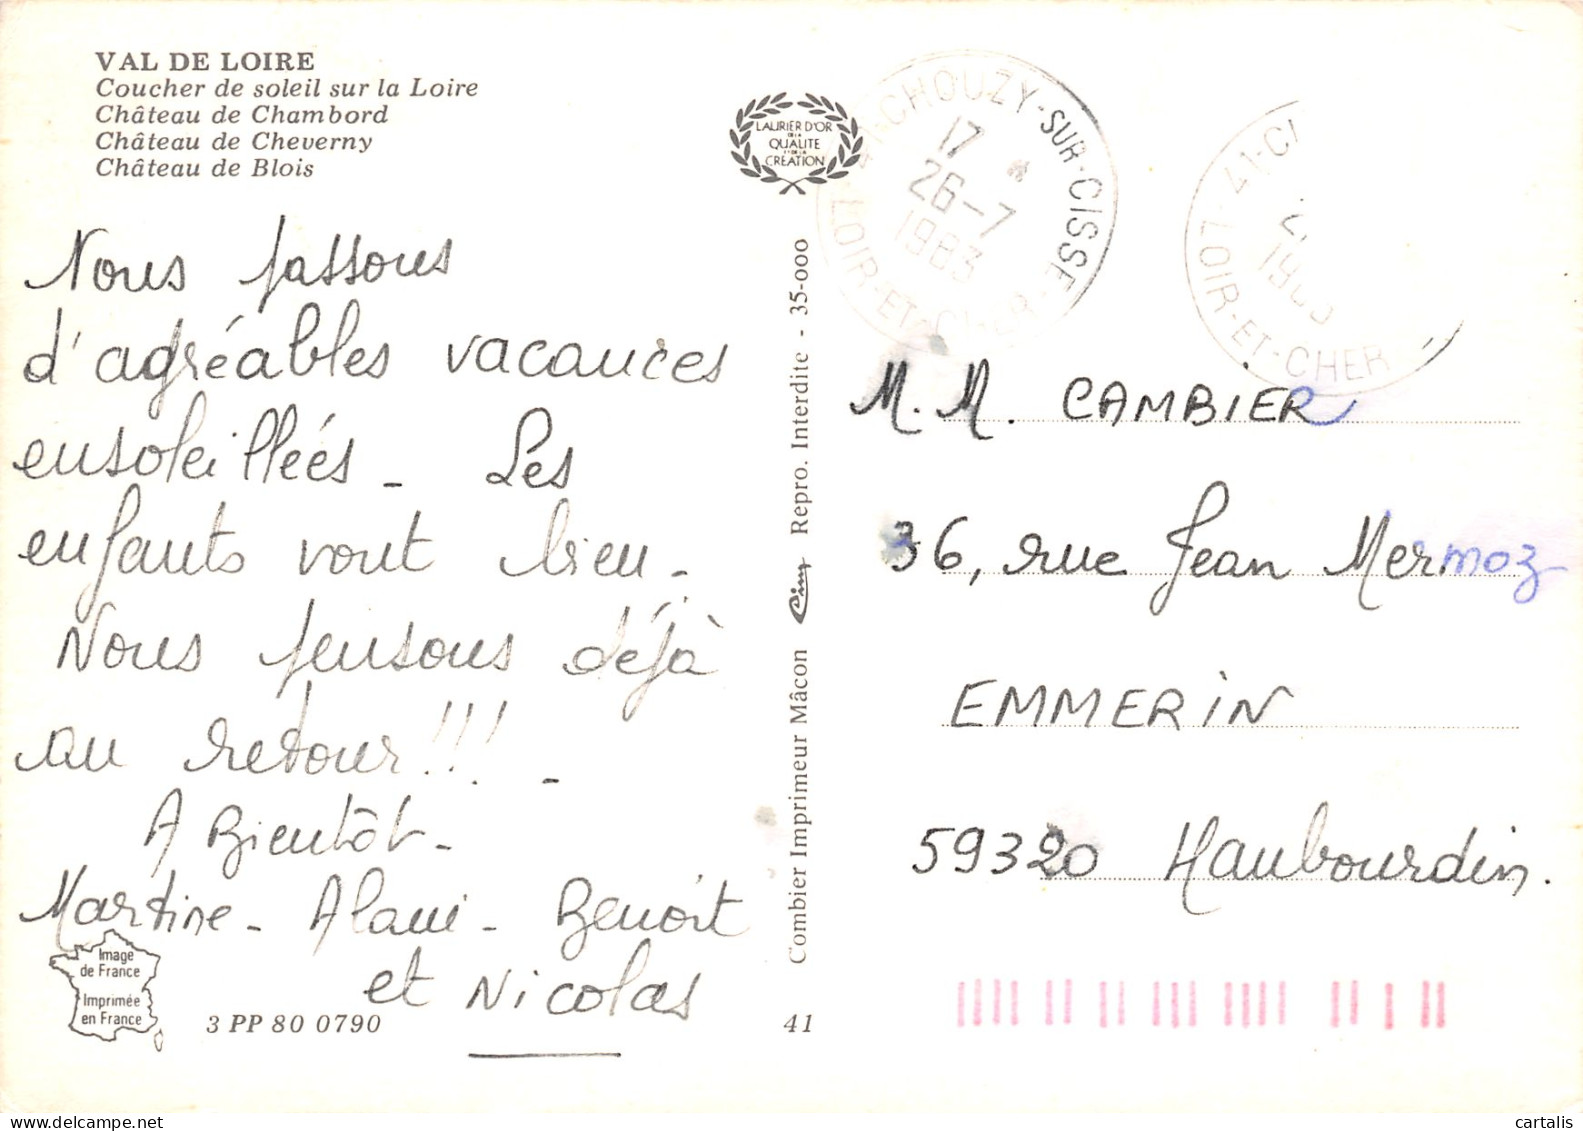 VAL DE LOIRE
Coucher de soleil sur la Loire
Château de Chambord
Château de Cheverny
Château de Blois
Nous passons
d'agréables vacances
ensoleillées - Les
enfants vont bien -
Nous pensons déjà
au retour !!! -
A Bientôt -
Martine - Alain - Benoît
et Nicolas
Image
de France
Imprimée
en France
3 PP 80 0790
LAURIER D'OR
DE LA
QUALITE
ET DE LA
CREATION
Combier Imprimeur Mâcon Cim Repro. Interdite - 35-000
41
41-CHOUZY-SUR-CISSE
17
26-7
1983
LOIR-ET-CHER
41-C
LOIR-ET-CHER
M. M. CAMBIER
36, rue Jean Mermoz
EMMERIN
59320 Haubourdin.
cartalis